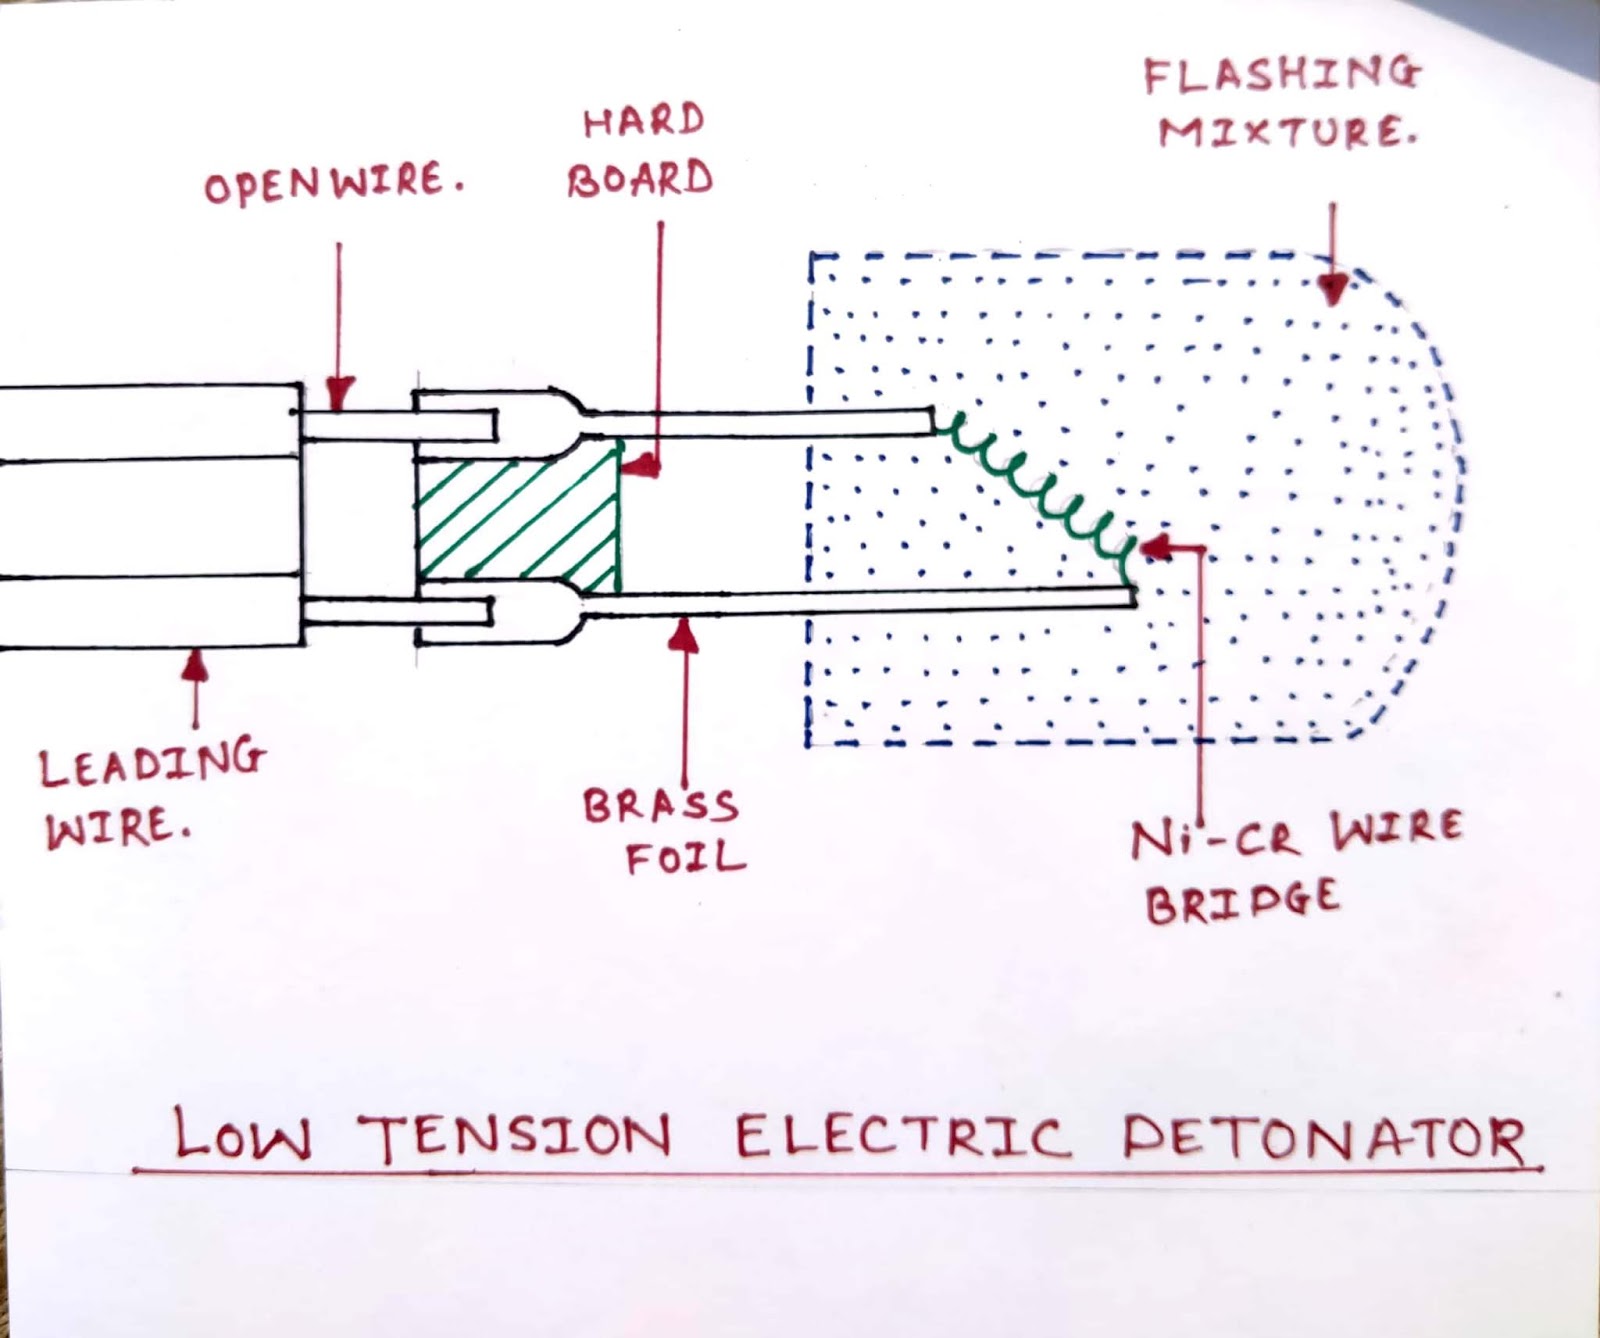 FLASHING
MIXTURE.
HARD
BOARD
OPENWIRE.
LEADING
WIRE.
BRASS
FOIL
Ni-CR WIRE
BRIDGE
LOW TENSION ELECTRIC DETONATOR